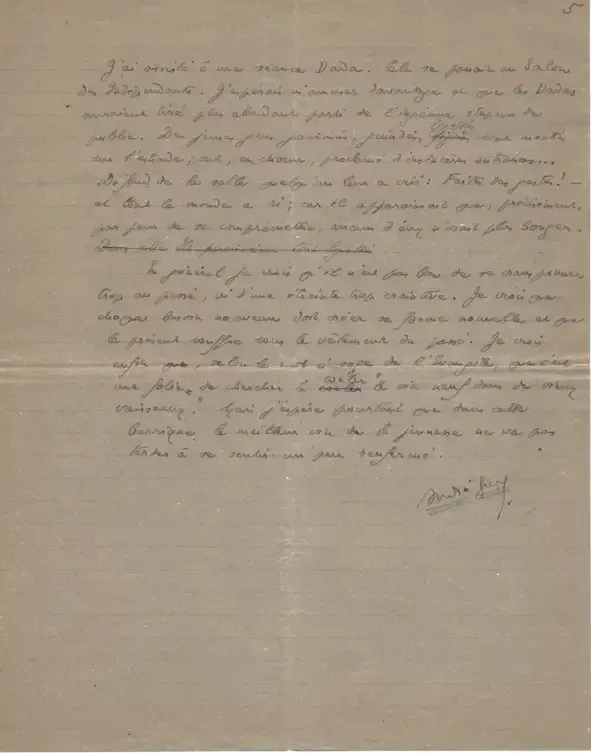 5
J'ai assisté à une séance Dada. Elle se passait au Salon
des Indépendants. J'espérais m'amuser davantage et que les Dadas
auraient tiré plus abondant parti de l'ingénue stupeur du
public. Des jeunes gens gourmés, guindés, ligotés, sont montés
sur l'estrade; ont, en chœur, proclamé d'insincères outrances...
Du fond de la salle quelqu'un leur a crié: Faites des gestes! –
et tout le monde a ri; car il apparaissait que, précisément,
par peur de se compromettre, aucun d'eux n'osait plus bouger.
En général je crois qu'il n'est pas bon de se cramponner
trop au passé, ni d'une étreinte trop craintive. Je crois que
chaque besoin nouveau doit créer sa forme nouvelle et que
le présent souffre sous le vêtement du passé. Je crois
enfin que, selon le mot si sage de l'Évangile, que c'est
une folie "de chercher à couler le vin neuf dans de vieux
vaisseaux". Mais j'espère pourtant que dans cette
barrique, le meilleur vin de la jeunesse ne va pas
tarder à se sentir un peu renfermé.
André Gide